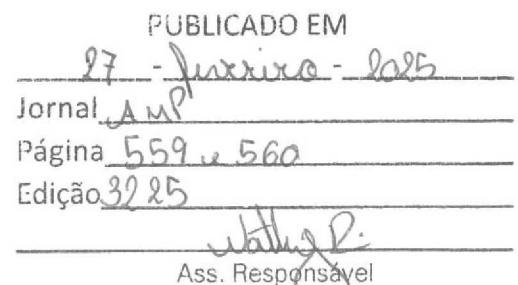 PUBLICADO EM
27 - fevereiro - 2025
Jornal AMP
Página 559 e 560
Edição 3225
Ass. Responsável